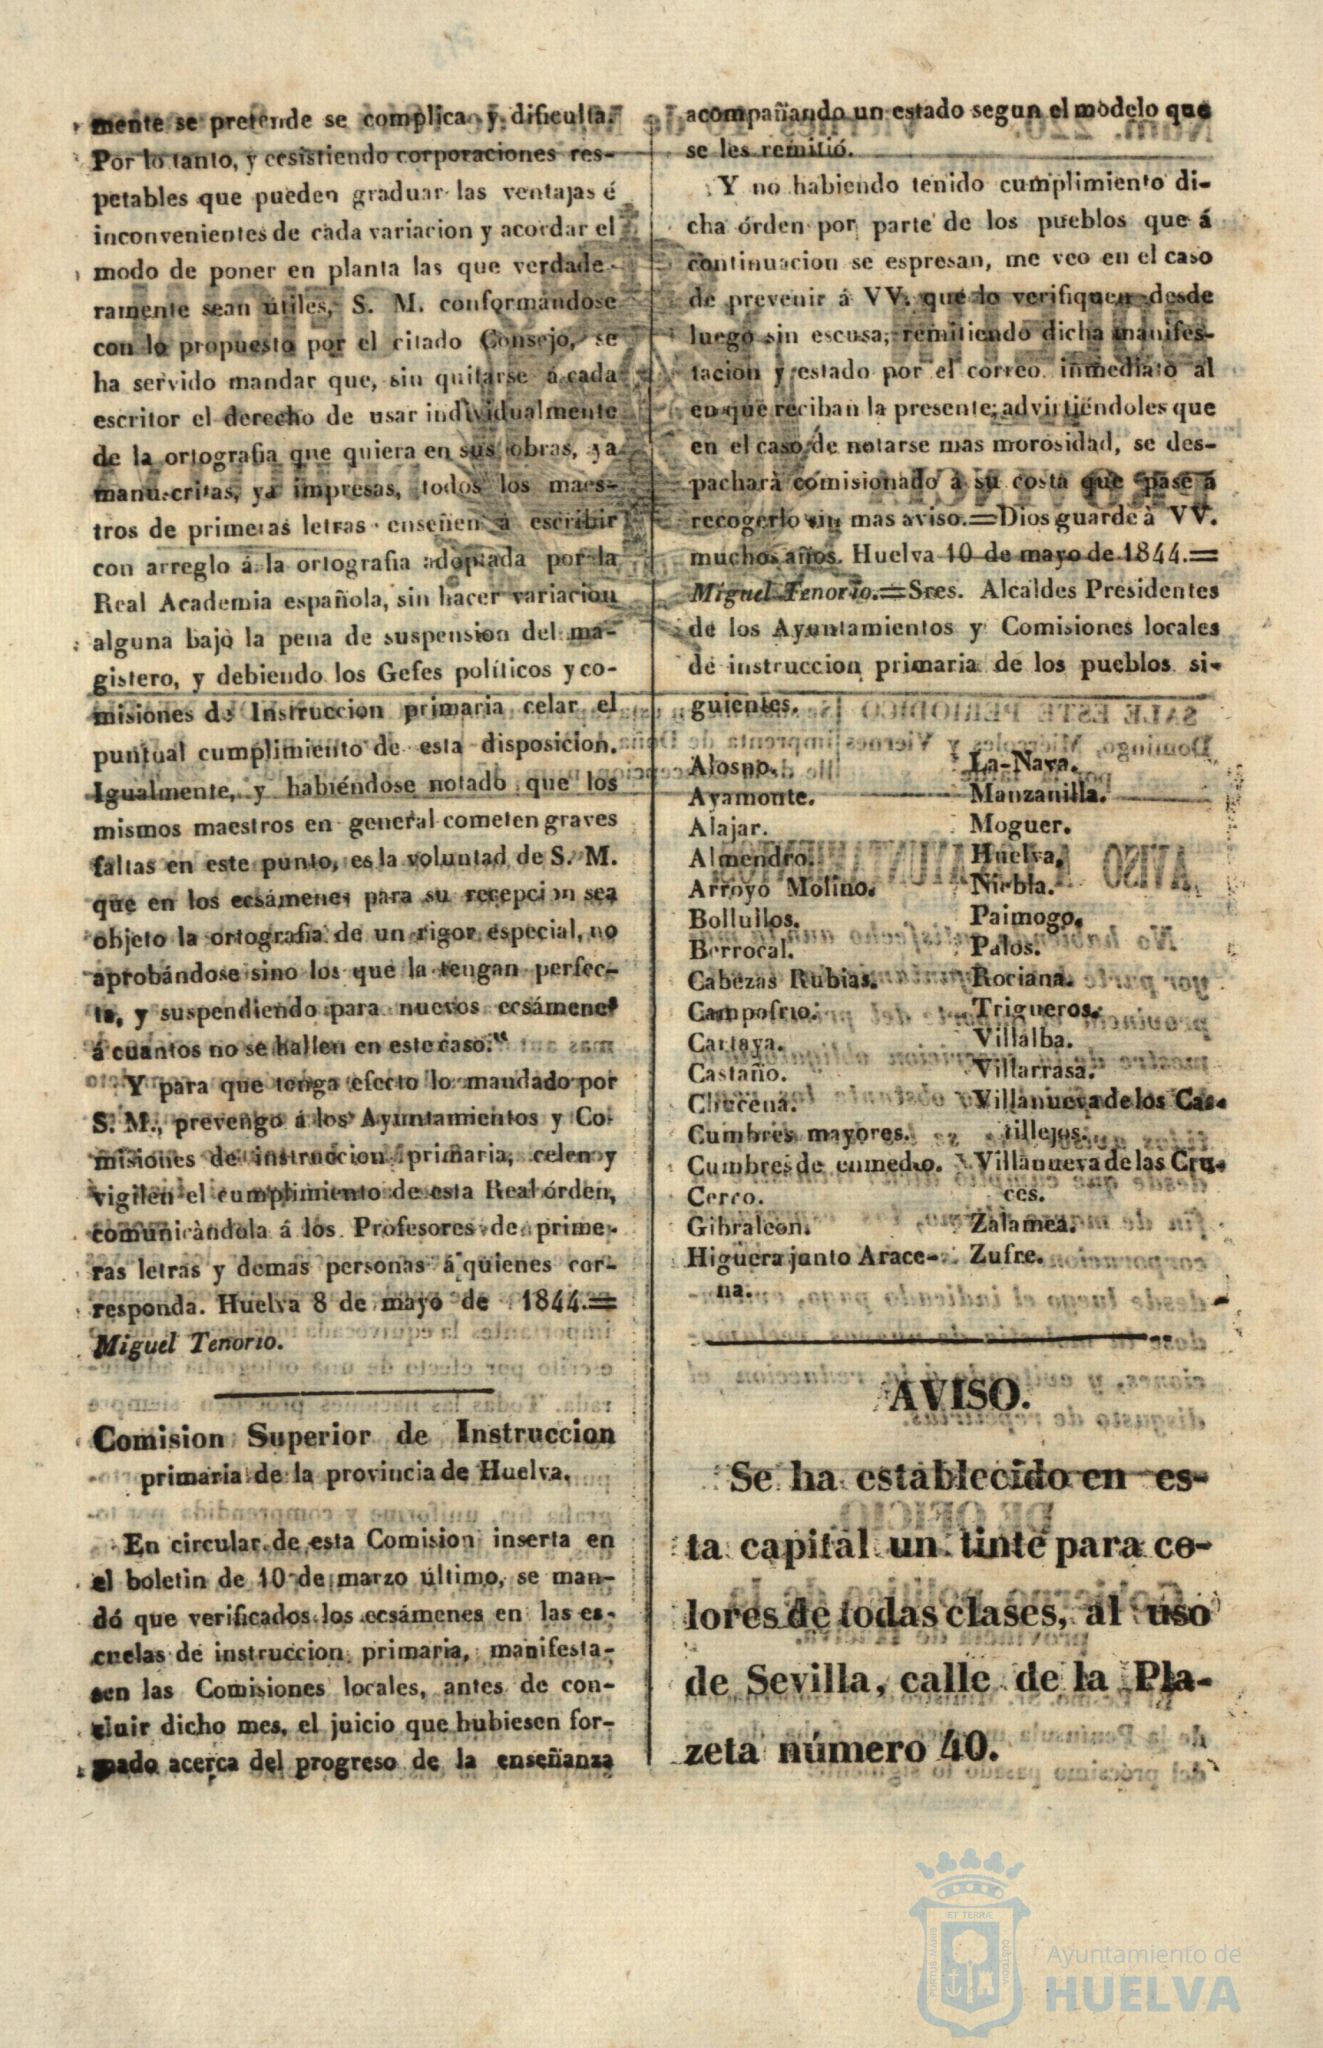 mente se pretende se complica y dificulta.
Por lo tanto, y ecsistiendo corporaciones res-
petables que pueden graduar las ventajas é
inconvenientes de cada variacion y acordar el
modo de poner en planta las que verdade-
ramente sean útiles, S. M. conformándose
con lo propuesto por el citado Consejo, se
ha servido mandar que, sin quitarse á cada
escritor el derecho de usar individualmente
de la ortografia que quiera en sus obras, ya
manuscritas, ya impresas, todos los maes-
tros de primeras letras enseñen á escribir
con arreglo á la ortografia adoptada por la
Real Academia española, sin hacer variacion
alguna bajo la pena de suspension del ma-
gistero, y debiendo los Gefes políticos y co-
misiones de Instruccion primaria celar el
puntual cumplimiento de esta disposicion.
Igualmente, y habiéndose notado que los
mismos maestros en general cometen graves
faltas en este punto, es la voluntad de S. M.
que en los ecsámenes para su recepcion sea
objeto la ortografia de un rigor especial, no
aprobándose sino los que la tengan perfec-
ta, y suspendiendo para nuevos ecsámenes
á cuantos no se hallen en este caso."
Y para que tenga efecto lo mandado por
S. M., prevengo á los Ayuntamientos y Co-
misiones de instruccion primaria, celen y
vigilen el cumplimiento de esta Real órden,
comunicàndola á los Profesores de prime-
ras letras y demas personas á quienes cor-
responda. Huelva 8 de mayo de 1844.=
Miguel Tenorio.
Comision Superior de Instruccion
primaria de la provincia de Huelva.
En circular de esta Comision inserta en
el boletin de 10 de marzo último, se man-
dó que verificados los ecsámenes en las es-
cuelas de instruccion primaria, manifesta-
sen las Comisiones locales, antes de con-
cluir dicho mes, el juicio que hubiesen for-
mado acerca del progreso de la enseñanza
acompañando un estado segun el modelo que
se les remitió.
Y no habiendo tenido cumplimiento di-
cha órden por parte de los pueblos que á
continuacion se espresan, me veo en el caso
de prevenir á VV. que lo verifiquen desde
luego sin escusa, remitiendo dicha manifes-
tacion y estado por el correo inmediato al
en que reciban la presente; advirtiéndoles que
en el caso de notarse mas morosidad, se des-
pachará comisionado á su costa que pase á
recogerlo sin mas aviso.=Dios guarde à VV.
muchos años. Huelva 10 de mayo de 1844.=
Miguel Tenorio.=Sres. Alcaldes Presidentes
de los Ayuntamientos y Comisiones locales
de instruccion primaria de los pueblos si-
guientes.
Alosno.
Ayamonte.
Alajar.
Almendro.
Arroyo Molino.
Bollullos.
Berrocal.
Cabezas Rubias.
Campofrio.
Cartaya.
Castaño.
Chucena.
Cumbres mayores.
Cumbres de enmedio.
Cerro.
Gibraleon.
Higuera junto Arace-
na.
La-Nava.
Manzanilla.
Moguer.
Huelva.
Niebla.
Paimogo.
Palos.
Rociana.
Trigueros.
Villalba.
Villarrasa.
Villanueva de los Cas-
tillejos.
Villanueva de las Cru-
ces.
Zalamea.
Zufre.
AVISO.
Se ha establecido en es-
ta capital un tinte para co-
lores de todas clases, al uso
de Sevilla, calle de la Pla-
zeta número 40.
ET TERRÆ
PORTUS MARIS
CUSTODIA
Ayuntamiento de
HUELVA